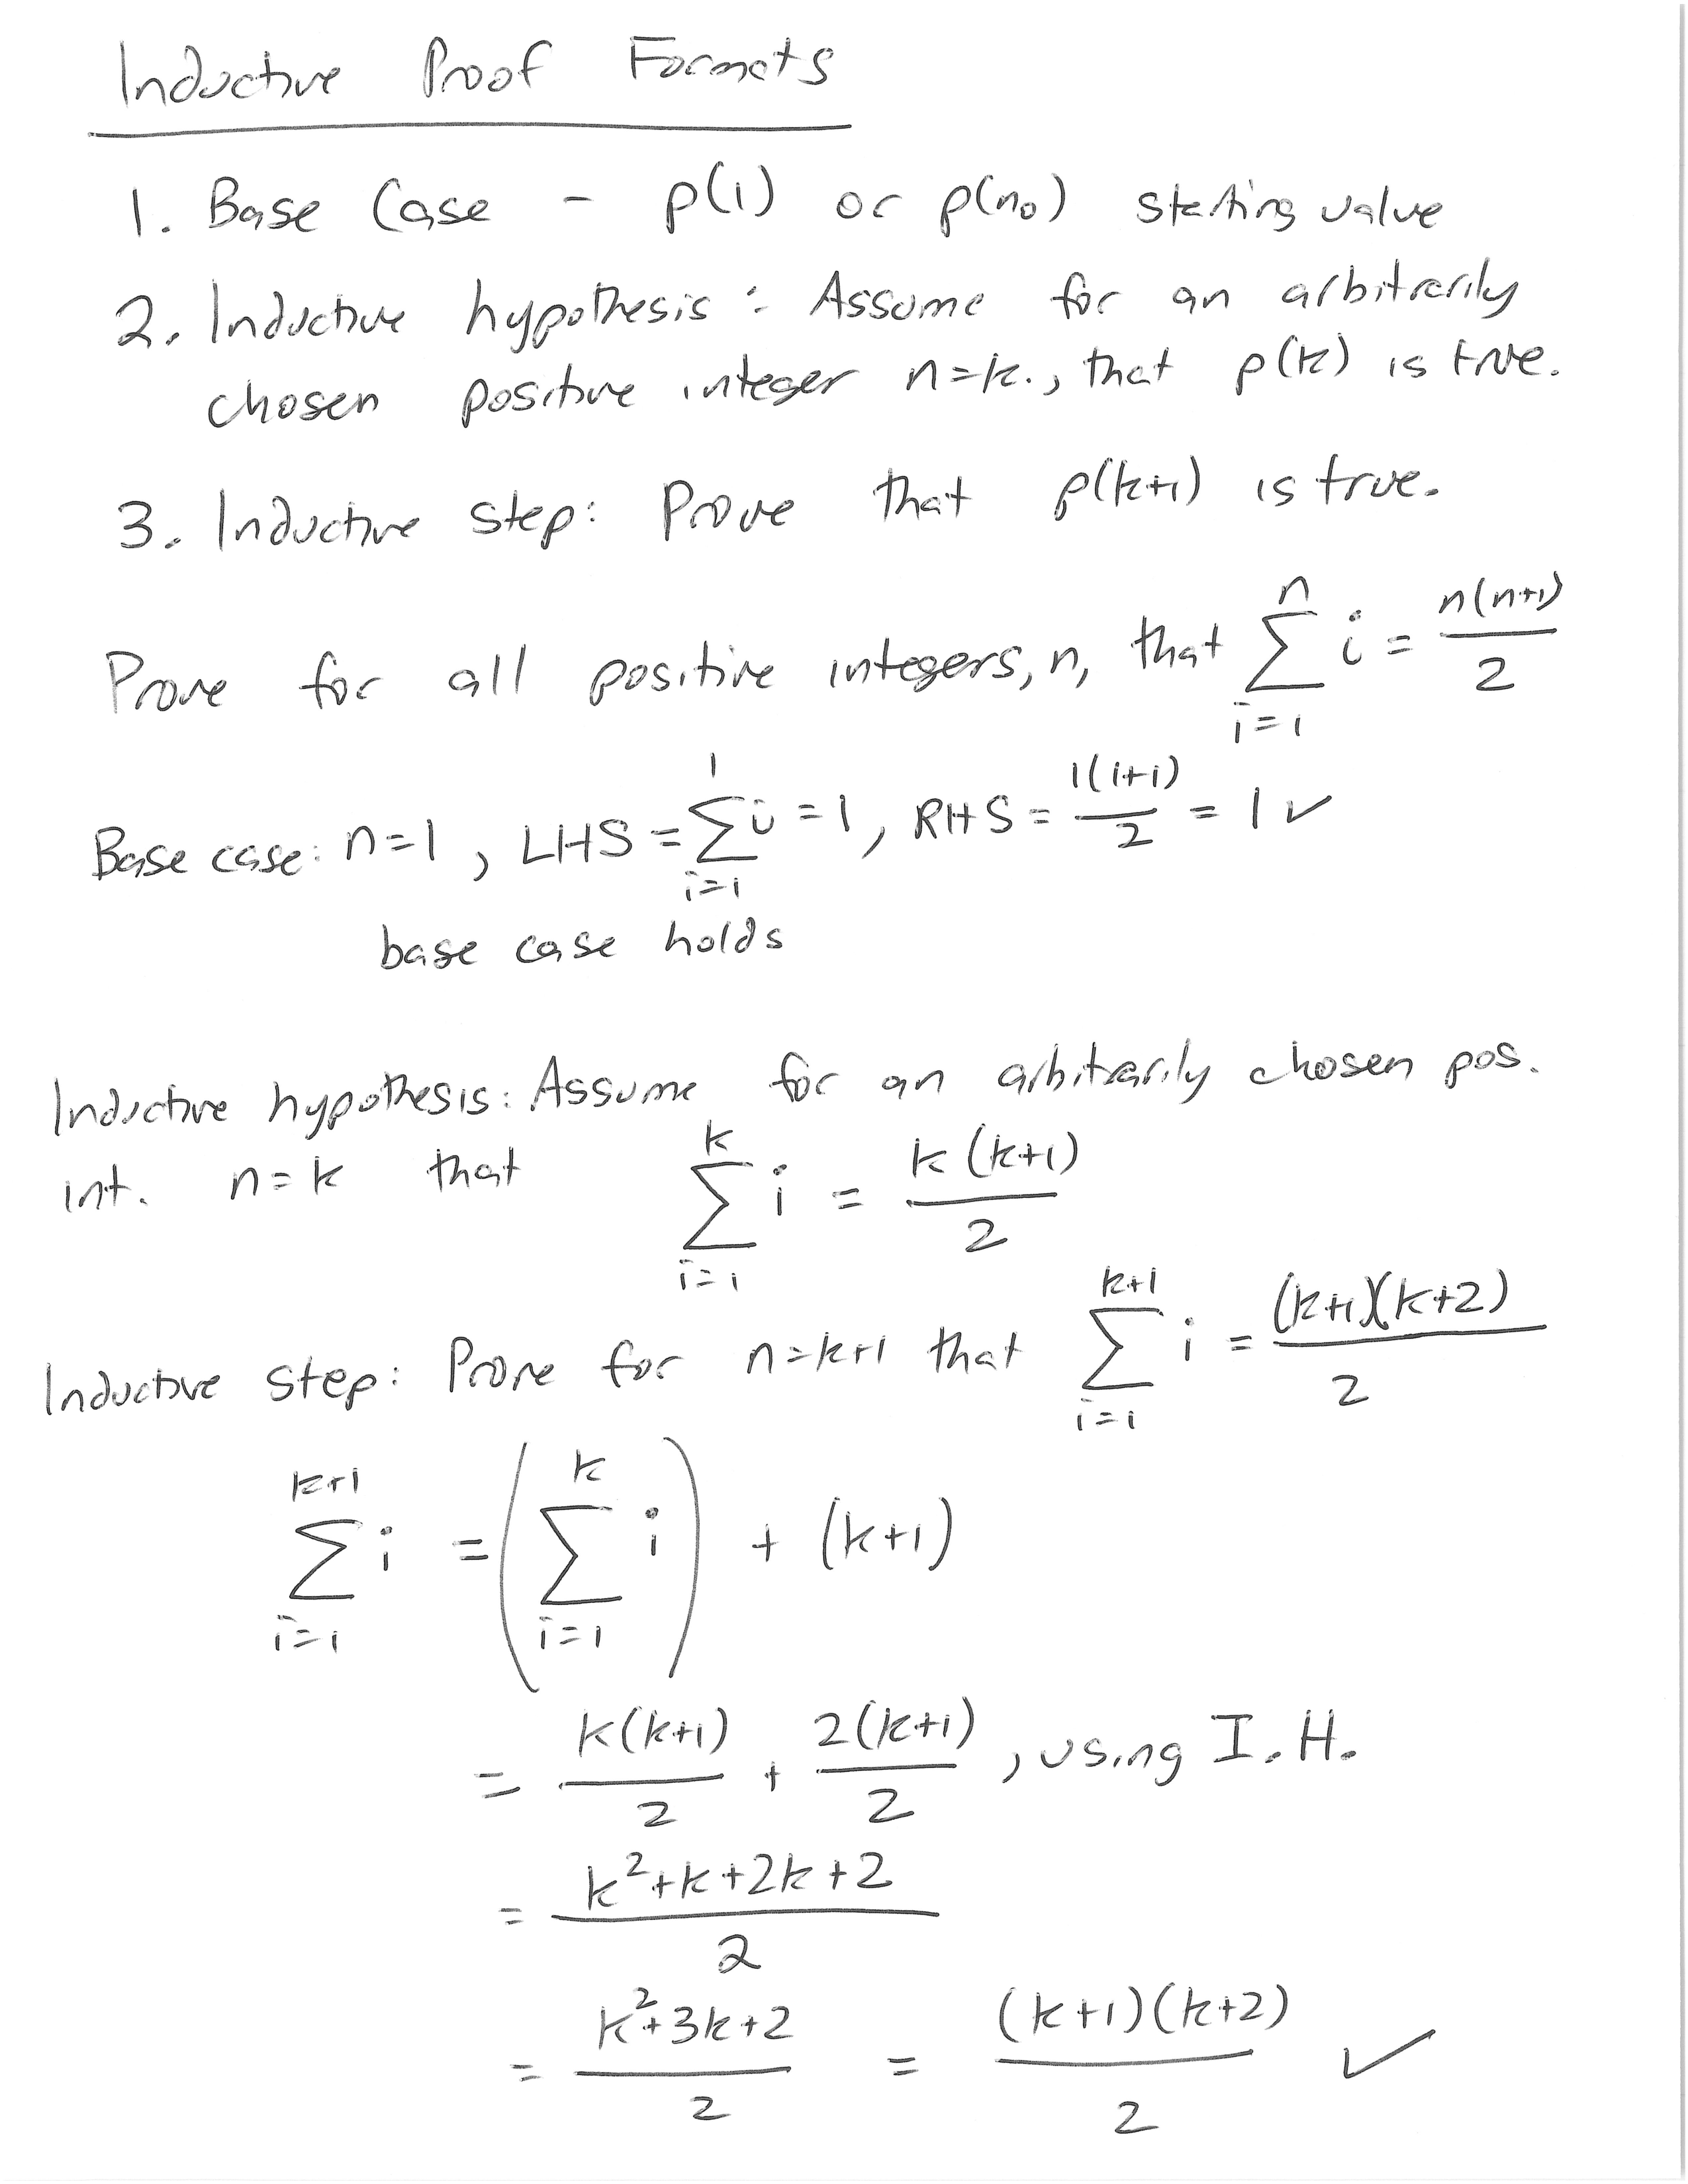 Inductive Proof Formats
1. Base Case - p(1) or p(n₀) starting value
2. Inductive hypothesis: Assume for an arbitrarily
chosen positive integer n=k., that p(k) is true.
3. Inductive step: Prove that p(k+1) is true.
Prove for all positive integers, n, that ∑_{i=1}^{n} i = n(n+1)/2
Base case: n=1, LHS = ∑_{i=1}^{1} i = 1, RHS = 1(1+1)/2 = 1 ✓
base case holds
Inductive hypothesis: Assume for an arbitrarily chosen pos.
int. n=k that ∑_{i=1}^{k} i = k(k+1)/2
Inductive step: Prove for n=k+1 that ∑_{i=1}^{k+1} i = (k+1)(k+2)/2
∑_{i=1}^{k+1} i = (∑_{i=1}^{k} i) + (k+1)
= k(k+1)/2 + 2(k+1)/2, using I.H.
= k²+k+2k+2/2
= k²+3k+2/2 = (k+1)(k+2)/2 ✓